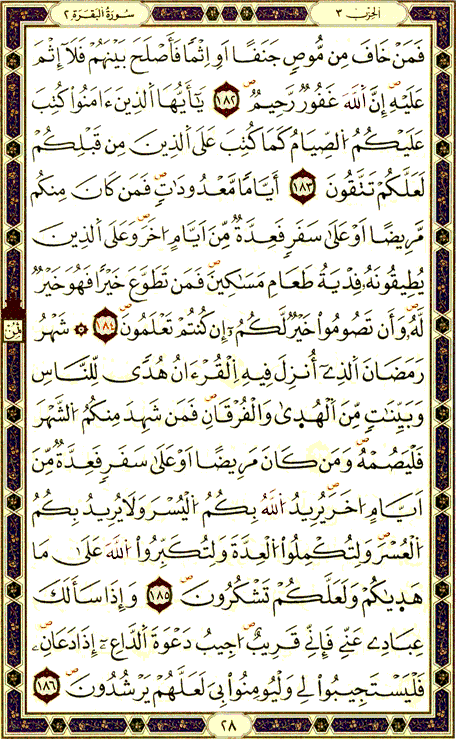 سُورَةُ الْبَقَرَةِ ٢ الحِزْبُ ٣
فَمَنْ خَافَ مِن مُّوصٍ جَنَفًا اَوِ اِثْمًا فَأَصْلَحَ بَيْنَهُمْ فَلَآ إِثْمَ
عَلَيْهِ إِنَّ اَللَّهَ غَفُورٌ رَّحِيمٌ ١٨٢ يَٰٓأَيُّهَا اَلذِينَ ءَامَنُواْ كُتِبَ
عَلَيْكُمُ اُلصِّيَامُ كَمَا كُتِبَ عَلَى اَلذِينَ مِن قَبْلِكُمْ
لَعَلَّكُمْ تَتَّقُونَ ١٨٣ أَيَّامًا مَّعْدُودَٰتٍ فَمَن كَانَ مِنكُم
مَّرِيضًا اَوْ عَلَىٰ سَفَرٍ فَعِدَّةٌ مِّنَ اَيَّامٍ اُخَرَ وَعَلَى اَلذِينَ
يُطِيقُونَهُۥ فِدْيَةُ طَعَامِ مَسَٰكِينَ فَمَن تَطَوَّعَ خَيْرًا فَهُوَ خَيْرٌ
لَّهُۥ وَأَن تَصُومُواْ خَيْرٌ لَّكُمُۥٓ إِن كُنتُمْ تَعْلَمُونَ ١٨٤ ۞ شَهْرُ
رَمَضَانَ اَلذِےٓ أُنزِلَ فِيهِ اِلْقُرْءَانُ هُدًى لِّلنَّاسِ
وَبَيِّنَٰتٍ مِّنَ اَلْهُدَىٰ وَالْفُرْقَانِ فَمَن شَهِدَ مِنكُمُ اُلشَّهْرَ
فَلْيَصُمْهُ وَمَن كَانَ مَرِيضًا اَوْ عَلَىٰ سَفَرٍ فَعِدَّةٌ مِّنَ
اَيَّامٍ اُخَرَ يُرِيدُ اُللَّهُ بِكُمُ اُلْيُسْرَ وَلَا يُرِيدُ بِكُمُ
اُلْعُسْرَ وَلِتُكْمِلُواْ اُلْعِدَّةَ وَلِتُكَبِّرُواْ اُللَّهَ عَلَىٰ مَا
هَدِيٰكُمْ وَلَعَلَّكُمْ تَشْكُرُونَ ١٨٥ وَإِذَا سَأَلَكَ
عِبَادِے عَنِّے فَإِنِّي قَرِيبٌ اُجِيبُ دَعْوَةَ اَلدَّاعِۦٓ إِذَا دَعَانِۦ
فَلْيَسْتَجِيبُواْ لِي وَلْيُومِنُواْ بِيَ لَعَلَّهُمْ يَرْشُدُونَ ١٨٦
٢٨